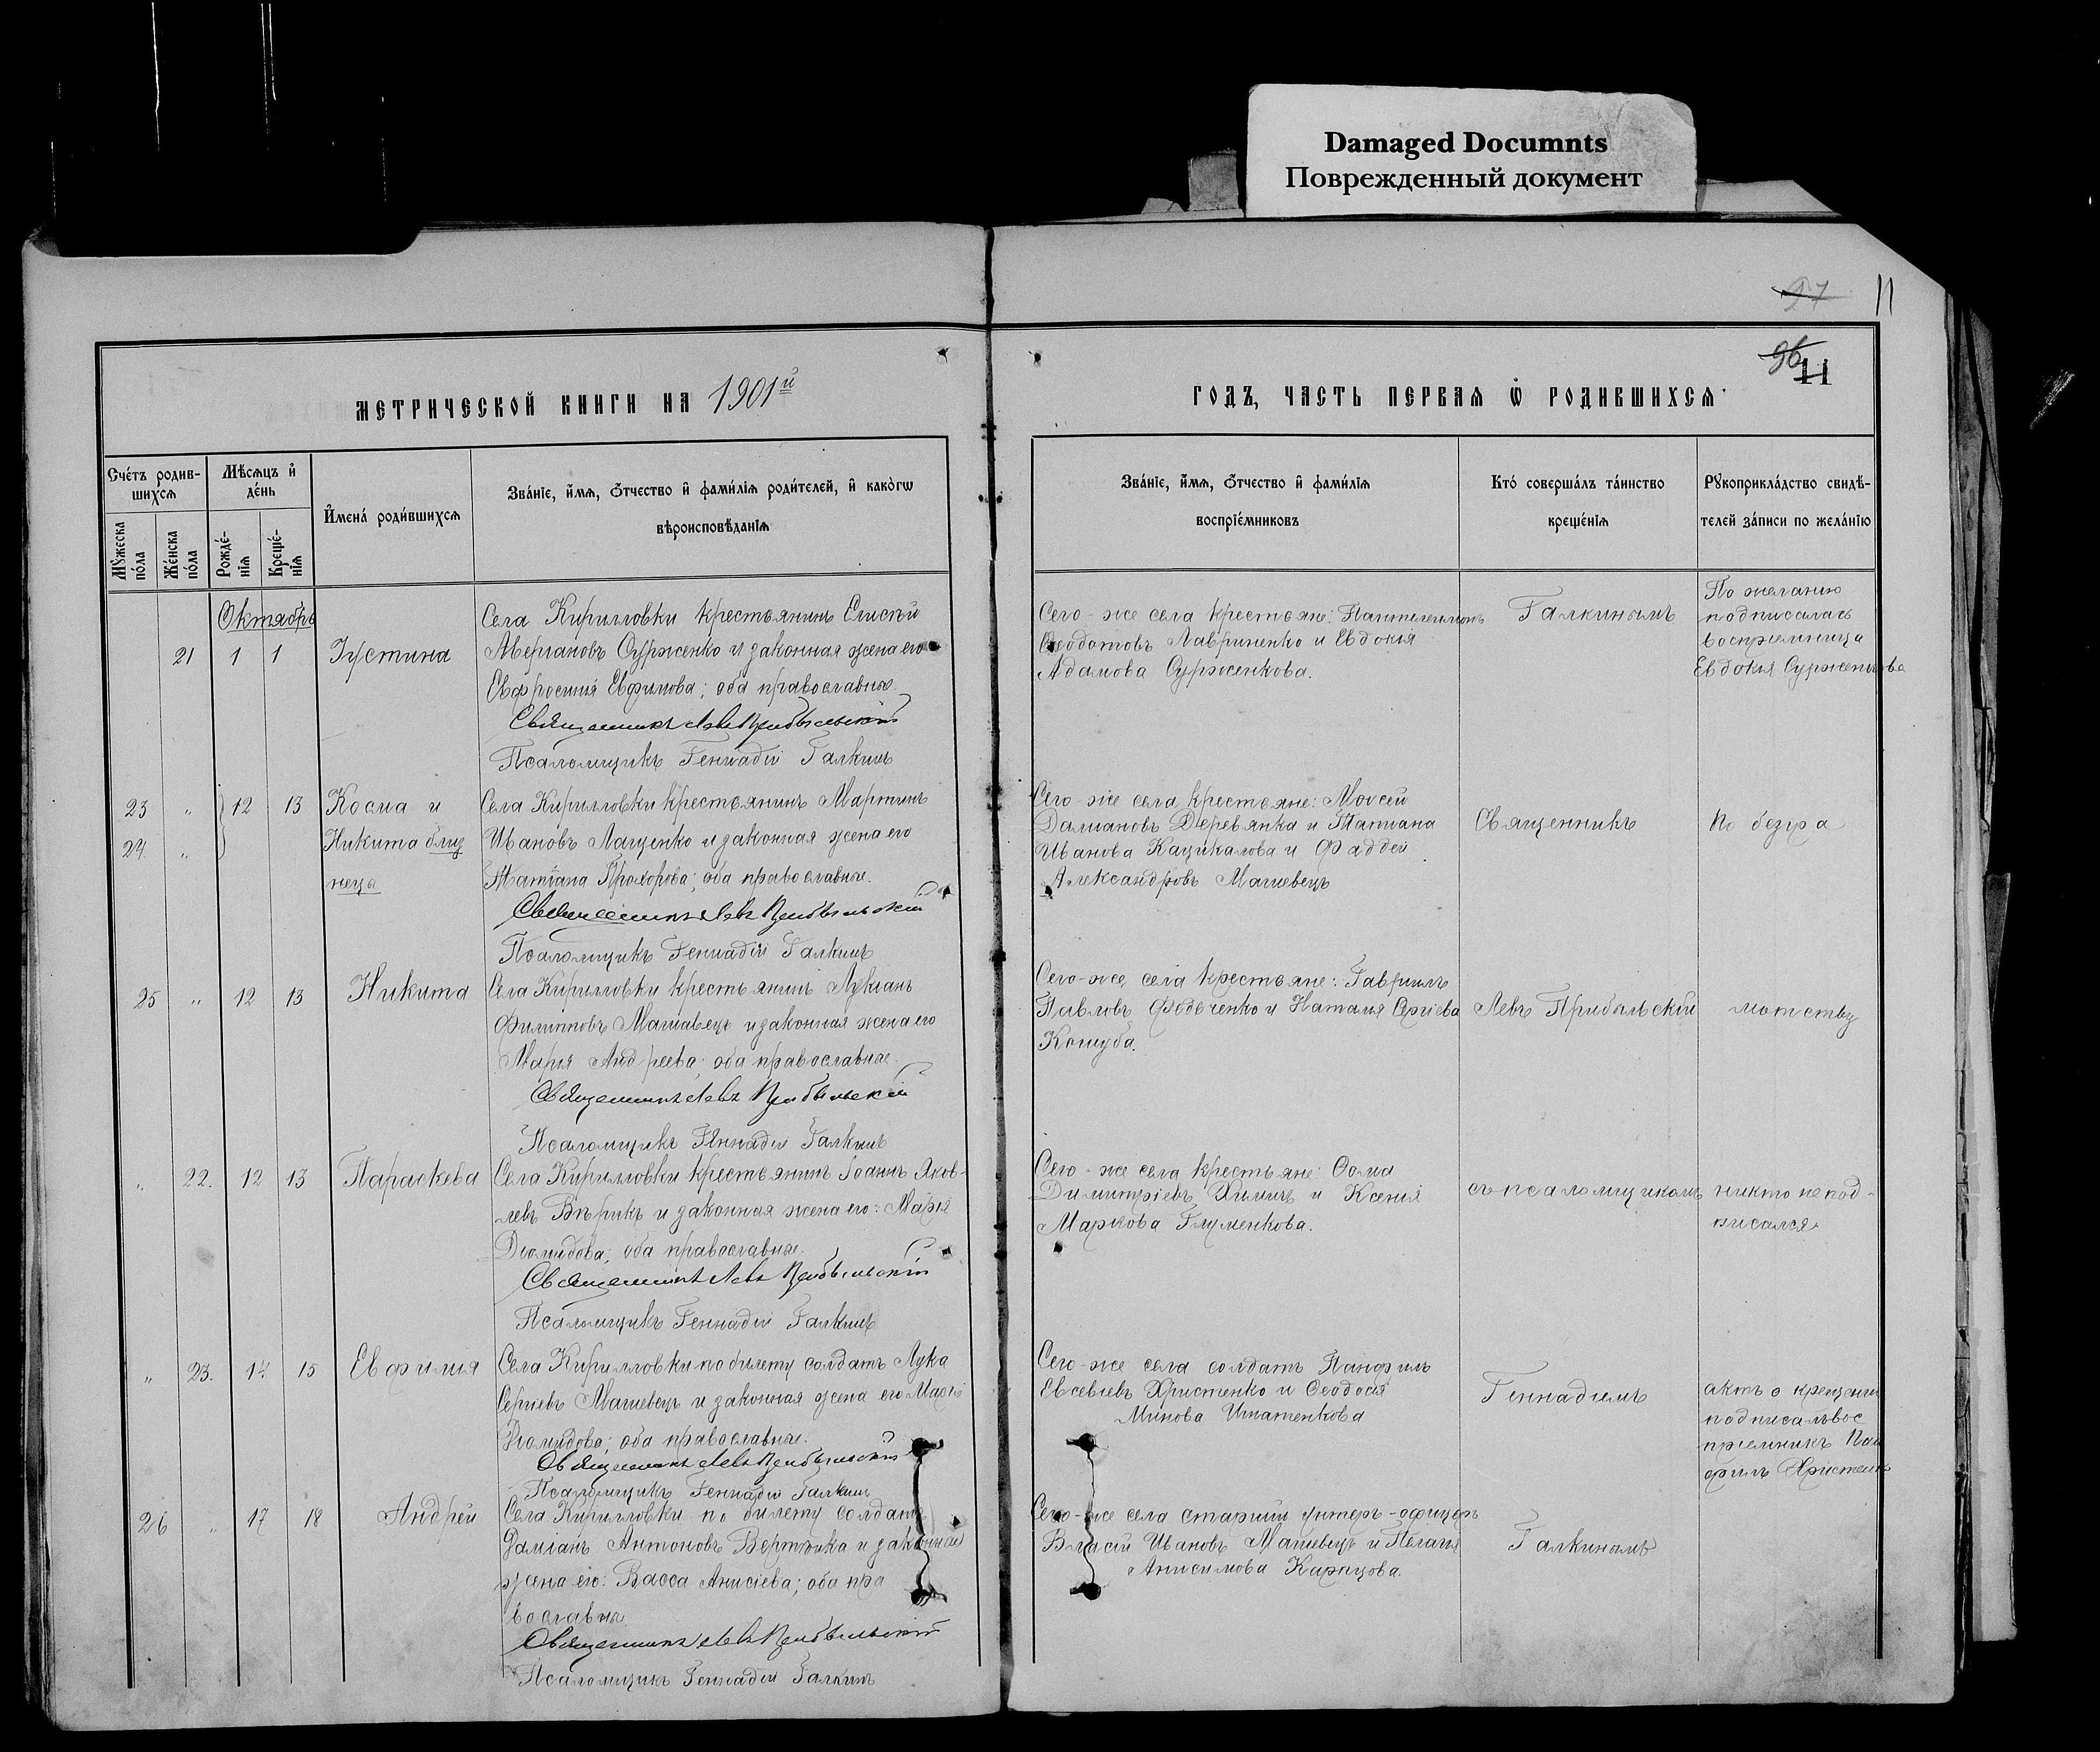 Damaged Documnts
Поврежденный документ
97 11
96 11
МЕТРИЧЕСКОЙ КНИГИ НА 1901й
ГОДЪ, ЧАСТЬ ПЕРВАЯ Ѡ РОДИВШИХСЯ
Сче́тъ родив-
шихсѧ
Мѣсѧцъ и҆
де́нь
Мꙋжеска по́ла
Же́нска по́ла
Рожде́-
нїѧ
Креще́-
нїѧ
И҆мена́ роди́вшихсѧ
Зва́нїе, и҆́мѧ, ѻ҆́тчество и҆ фами́лїѧ роди́телей, и҆ како́гѡ
вѣроисповѣ́данїѧ
Зва́нїе, и҆́мѧ, ѻ҆́тчество и҆ фами́лїѧ
воспрїе́мниковъ
Кто́ соверша́лъ та́инство
креще́нїѧ
Рꙋкоприкла́дство свидѣ́-
телей за́писи по жела́нїю
Октябрь
21 1 1 Іустина
Села Кирилловки крестьянинъ Елисѣй
Аверіановъ Сурженко и законная жена его
Евфросинія Евфимова; оба православные.
Священникъ Левъ Прибыльскій
Псаломщикъ Геннадій Галкинъ
Сего-же села крестьяне: Пантелеимонъ
Ѳеодотовъ Лавриненко и Евдокія
Адамова Сурженкова.
Галкинымъ
По желанію
подписалась
воспріемница
Евдокія Сурженкова
23 " 12 13 Косма и
24 " Никита близ
нецы
Села Кирилловки крестьянинъ Мартинъ
Ивановъ Лащенко и законная жена его
Татіана Прохорова; оба православные.
Священникъ Левъ Прибыльскій
Псаломщикъ Геннадій Галкинъ
Сего-же села крестьяне: Моисей
Даміановъ Деревянка и Татіана
Иванова Кацикалова и Фаддей
Александровъ Машевецъ
Священникъ
по безгра
25 " 12 13 Никита
Села Кирилловки крестьянинъ Лукіанъ
Филипповъ Машавецъ и законная жена его
Марія Андреева; оба православные.
Священникъ Левъ Прибыльскій
Псаломщикъ Геннадій Галкинъ
Сего-же села крестьяне: Гавріилъ
Павловъ Федоченко и Наталія Сергіева
Кошуба.
Левъ Прибыльскій
мотству
" 22. 12 13 Параскева
Села Кирилловки крестьянинъ Іоаннъ Яков-
левъ Вѣрикъ и законная жена его: Марія
Діомидова; оба православные.
Священникъ Левъ Прибыльскій
Псаломщикъ Геннадій Галкинъ
Сего-же села крестьяне: Ѳома
Димитріевъ Химичъ и Ксенія
Маркова Глуменкова.
съ псаломщикомъ
никто не под-
писался
" 23. 14 15 Евфимія
Села Кирилловки по билету солдатъ Лука
Сергіевъ Машевецъ и законная жена его Марія
Діомидова; оба православные.
Священникъ Левъ Прибыльскій
Псаломщикъ Геннадій Галкинъ
Сего-же села солдатъ Панфилъ
Евсевіевъ Христенко и Ѳеодосія
Минова Игнатенкова
Геннадіемъ
актъ о крещеніи
подписалъ вос
пріемникъ Пан
филъ Христенко
26 " 17 18 Андрей
Села Кирилловки по билету солдатъ
Даміанъ Антоновъ Вертянка и законная
жена его: Васса Анисіева; оба пра
вославные
Священникъ Левъ Прибыльскій
Псаломщикъ Геннадій Галкинъ
Сего-же села старшій унтеръ-офицеръ
Власій Ивановъ Машевецъ и Пелагія
Анисимова Карпцова.
Галкинымъ